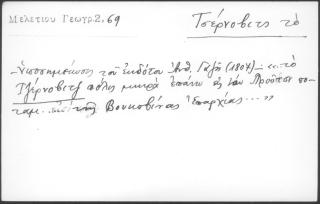 Μελετίου Γεωγρ.2,69
Τσέρνοβετς τὸ
Ὑποσημείωσις τοῦ ἐκδότου Ἀνθ. Γαζῆ (1807) ... τὸ
Τζέρνοβετζ πόλις μικρὰ ἐπάνω εἰς τὸν Προῦτον πο-
ταμ... τῆς Βουκοβίνας Ἐπαρχίας...."